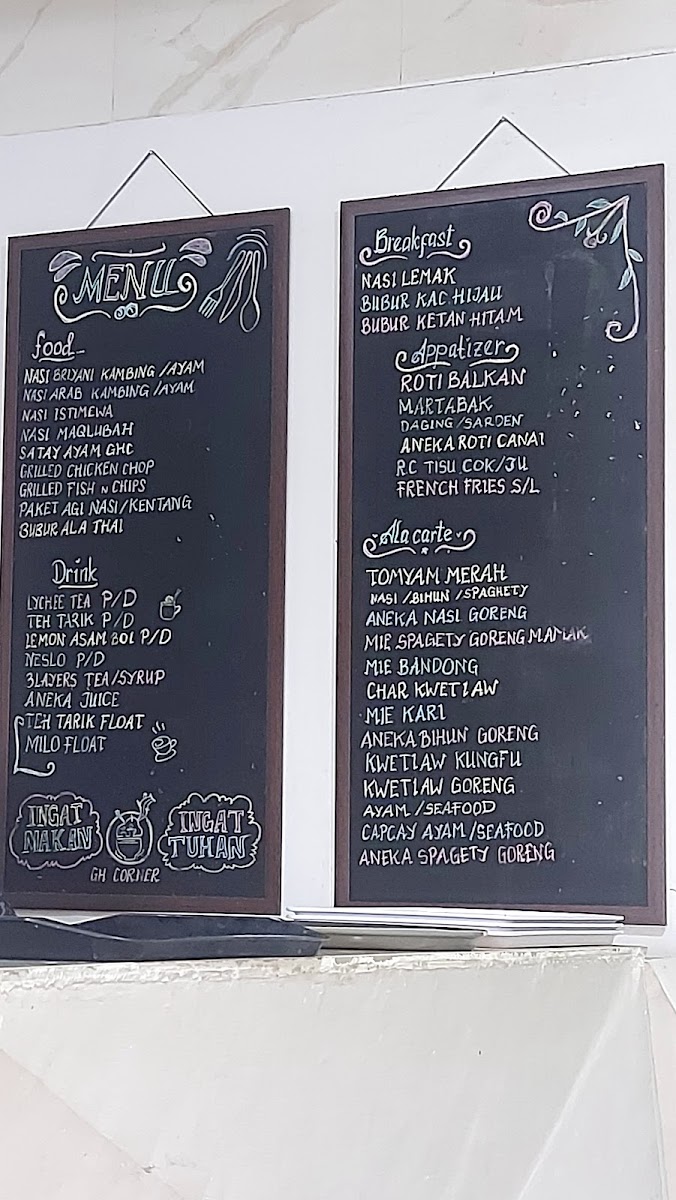 MENU
food
NASI BRIYANI KAMBING /AYAM
NASI ARAB KAMBING /AYAM
NASI ISTIMEWA
NASI MAQLUBAH
SATAY AYAM GHC
GRILLED CHICKEN CHOP
GRILLED FISH N CHIPS
PAKET AGI NASI/KENTANG
BUBUR ALA THAI
Drink
LYCHEE TEA P/D
TEH TARIK P/D
LEMON ASAM BOI P/D
NESLO P/D
3LAYERS TEA/SYRUP
ANEKA JUICE
TEH TARIK FLOAT
MILO FLOAT
INGAT MAKAN
INGAT TUHAN
GH CORNER
Breakfast
NASI LEMAK
BUBUR KAC HIJAU
BUBUR KETAN HITAM
Appatizer
ROTI BALKAN
MARTABAK
DAGING /SARDEN
ANEKA ROTI CANAI
RC TISU COK/JU
FRENCH FRIES S/L
Ala carte
TOMYAM MERAH
NASI /BIHUN /SPAGHETY
ANEKA NASI GORENG
MIE SPAGETY GORENG MAMAK
MIE BANDONG
CHAR KWETIAW
MIE KARI
ANEKA BIHUN GORENG
KWETIAW KUNGFU
KWETIAW GORENG
AYAM /SEAFOOD
CAPCAY AYAM /SEAFOOD
ANEKA SPAGETY GORENG